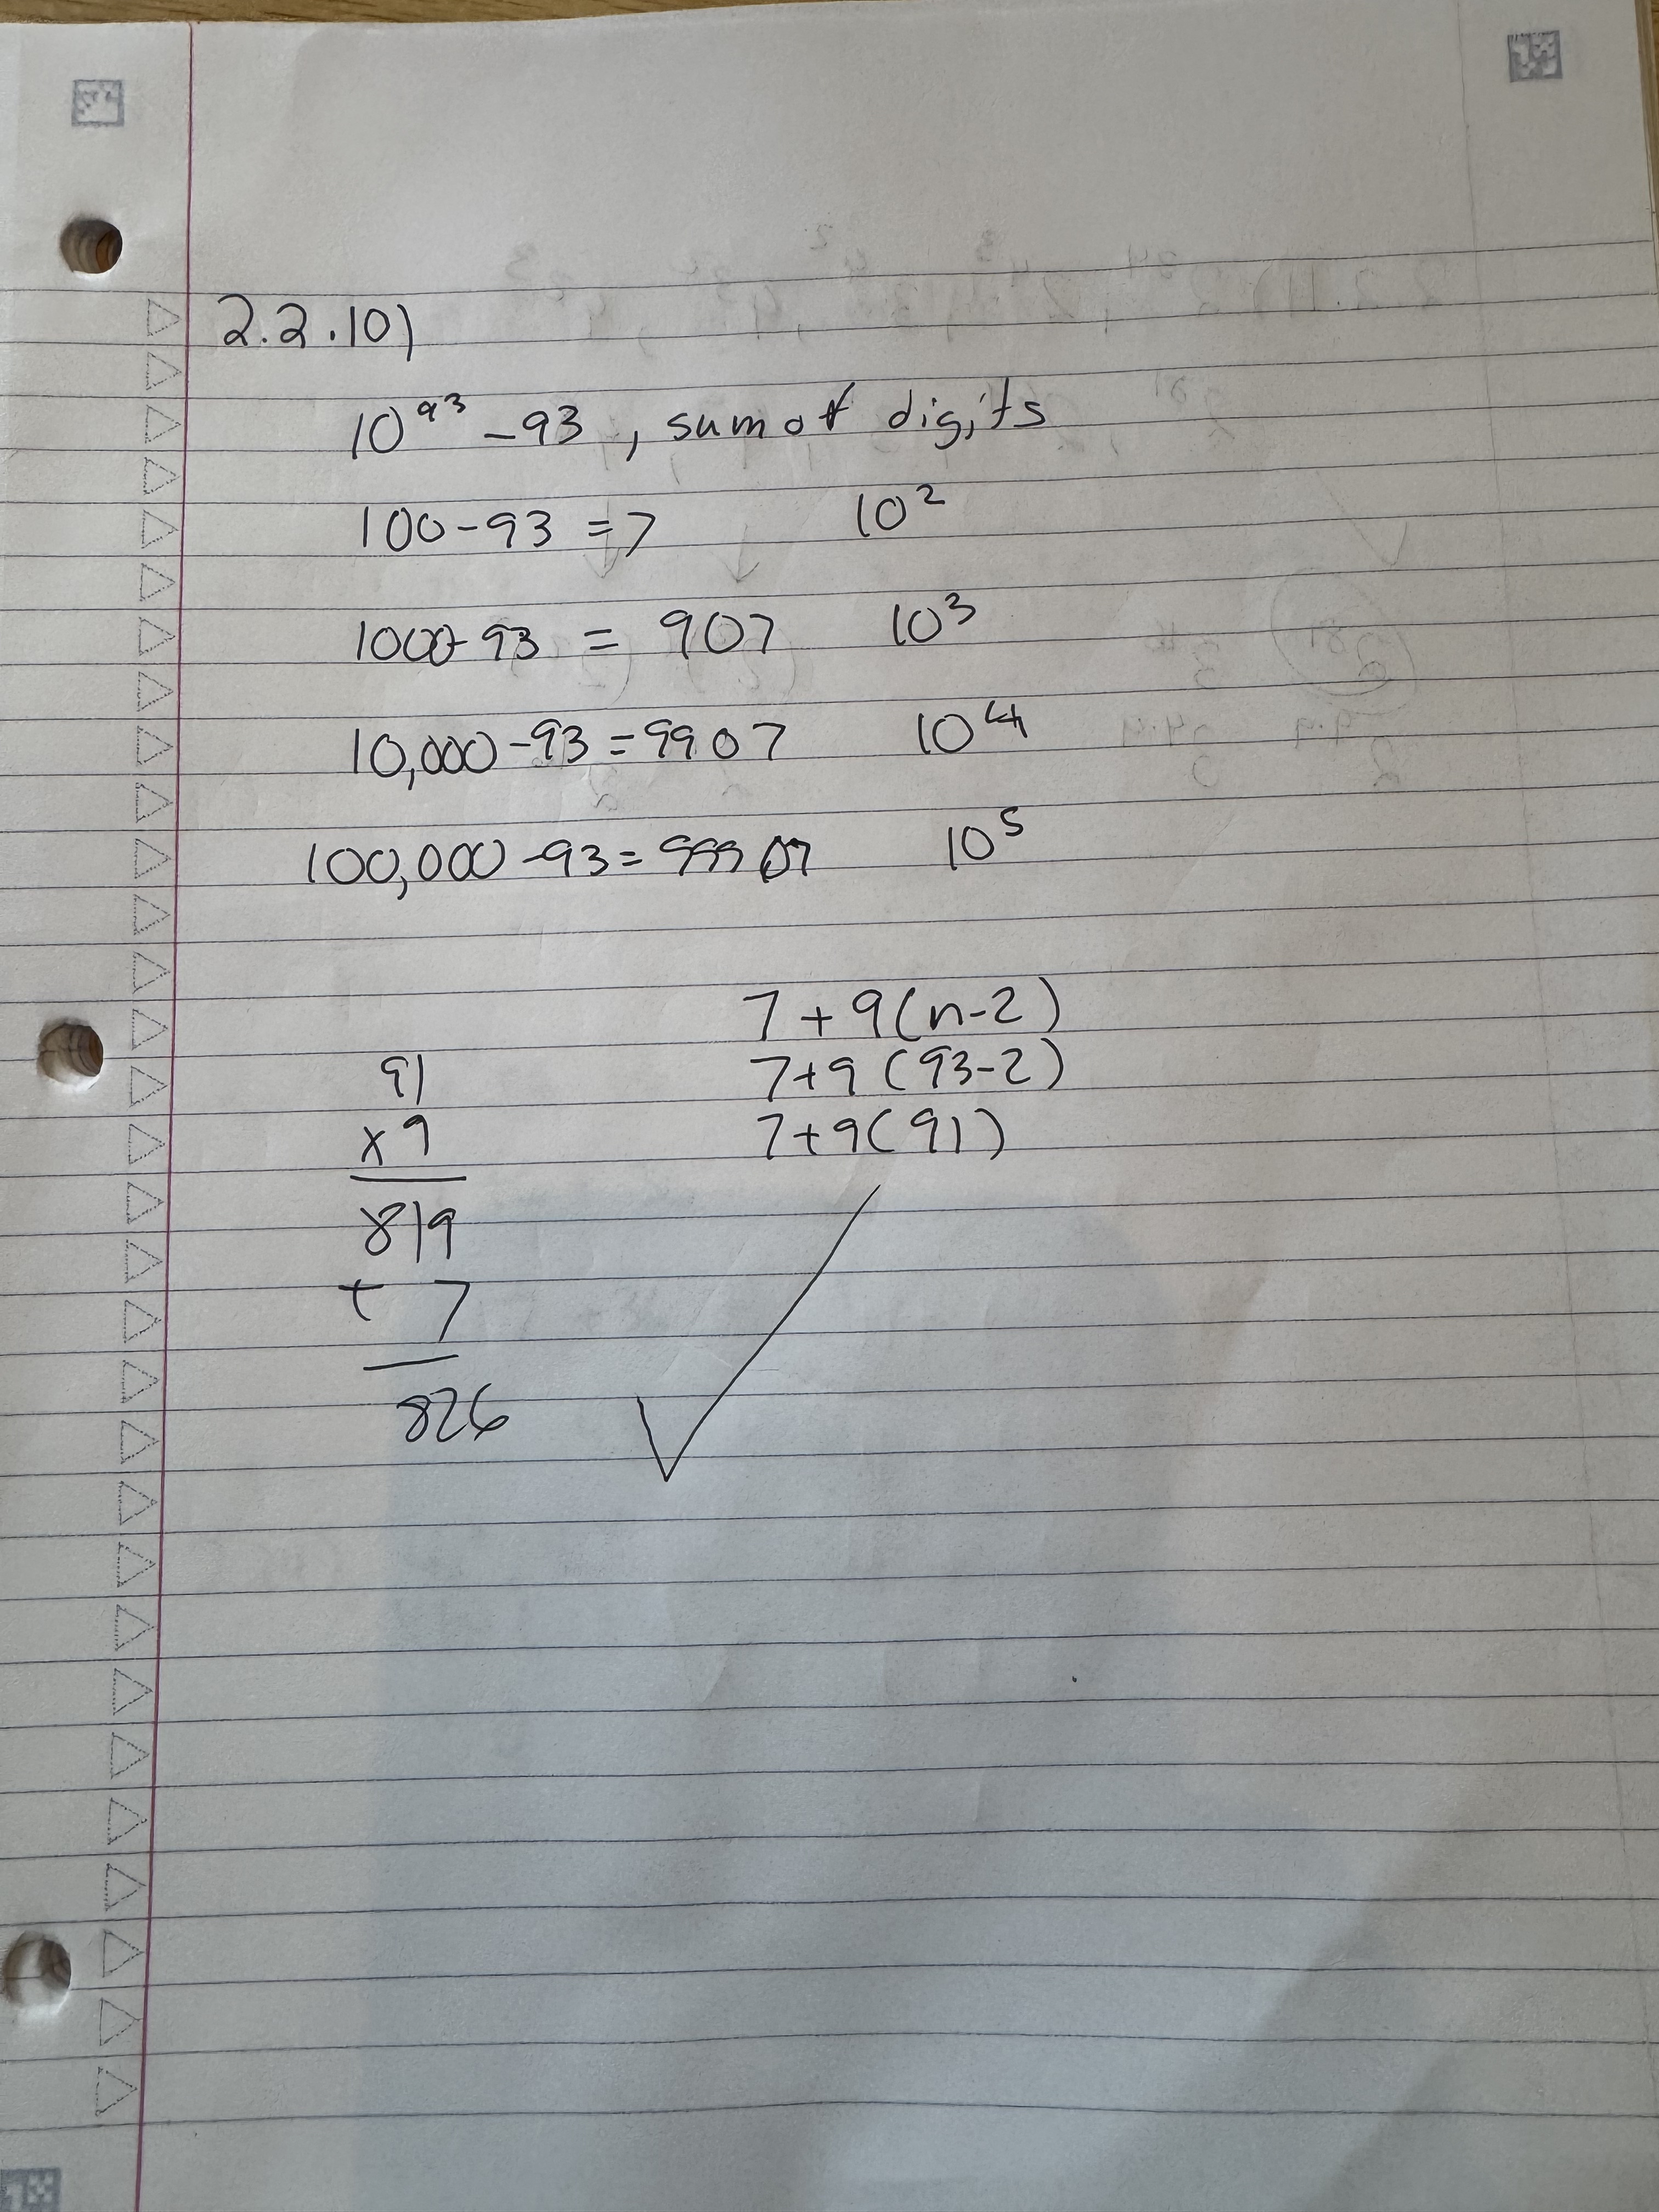 2.2.10)
10^93 - 93, sum of digits
100 - 93 = 7 10^2
1000 - 93 = 907 10^3
10,000 - 93 = 9907 10^4
100,000 - 93 = 99907 10^5
7 + 9(n-2)
7 + 9(93-2)
7 + 9(91)
91
x 9
819
+ 7
826